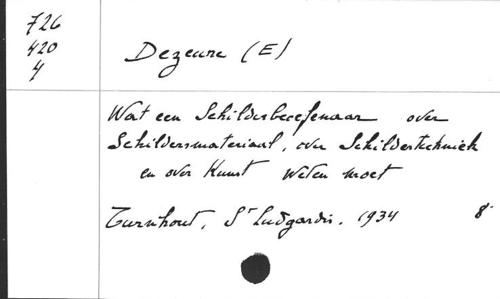 726
420
4
Dezeure (E)
Wat een Schildersbeoefenaar over
Schildersmateriaal, over Schildertechniek
en over Kunst weten moet
Turnhout, St Ludgardis. 1934 8°